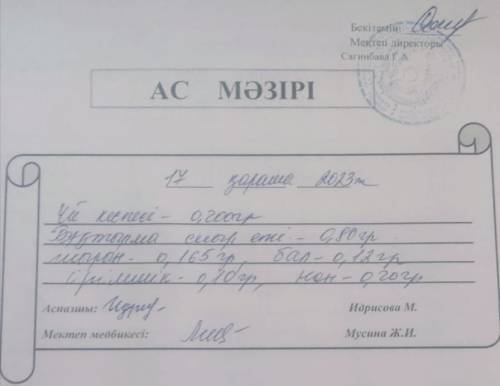 Бекітемін:
Мектеп директоры
Сагинбаева Г.А
АС МӘЗІРІ
17 қараша 2023ж
Үй кеспесі - 0,200гр
Тұштырма сиыр еті - 0,80гр
шырын - 0,165гр, бал - 0,12гр
ірімшік - 0,10гр, нан - 0,20гр
Аспазшы: Идрисова М.
Мектеп медбикесі: Мусина Ж.И.